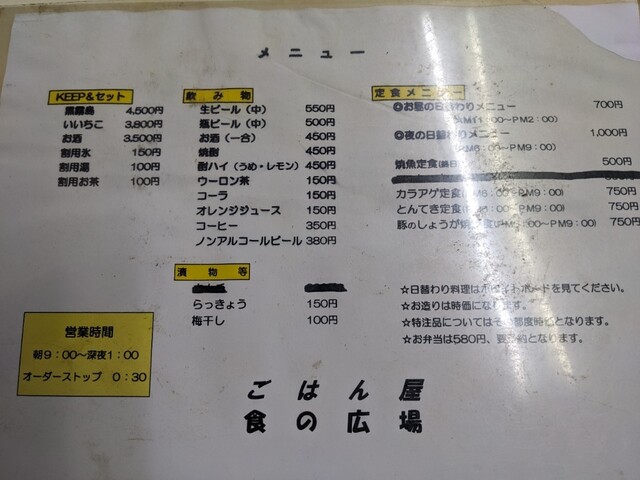 メニュー
KEEP&セット
黒霧島 4,500円
いいちこ 3,800円
お酒 3,500円
割用氷 150円
割用湯 100円
割用お茶 100円
飲み物
生ビール（中） 550円
瓶ビール（中） 500円
お酒（一合） 450円
焼酎 450円
酎ハイ（うめ・レモン） 450円
ウーロン茶 150円
コーラ 150円
オレンジジュース 150円
コーヒー 350円
ノンアルコールビール 380円
漬物等
らっきょう 150円
梅干し 100円
定食メニュー
◎お昼の日替わりメニュー 700円
AM11：00～PM2：00）
◎夜の日替わりメニュー 1,000円
PM6：00～PM9：00）
焼魚定食(終日) 500円
カラアゲ定食(PM6：00～PM9：00) 750円
とんてき定食(PM6：00～PM9：00) 750円
豚のしょうが焼 ：00～PM9：00) 750円
☆日替わり料理はホワイトボードを見てください。
☆お造りは時価になります。
☆特注品についてはその都度時価となります。
☆お弁当は580円、要予約となります。
営業時間
朝9：00～深夜1：00
オーダーストップ 0：30
ごはん屋
食の広場